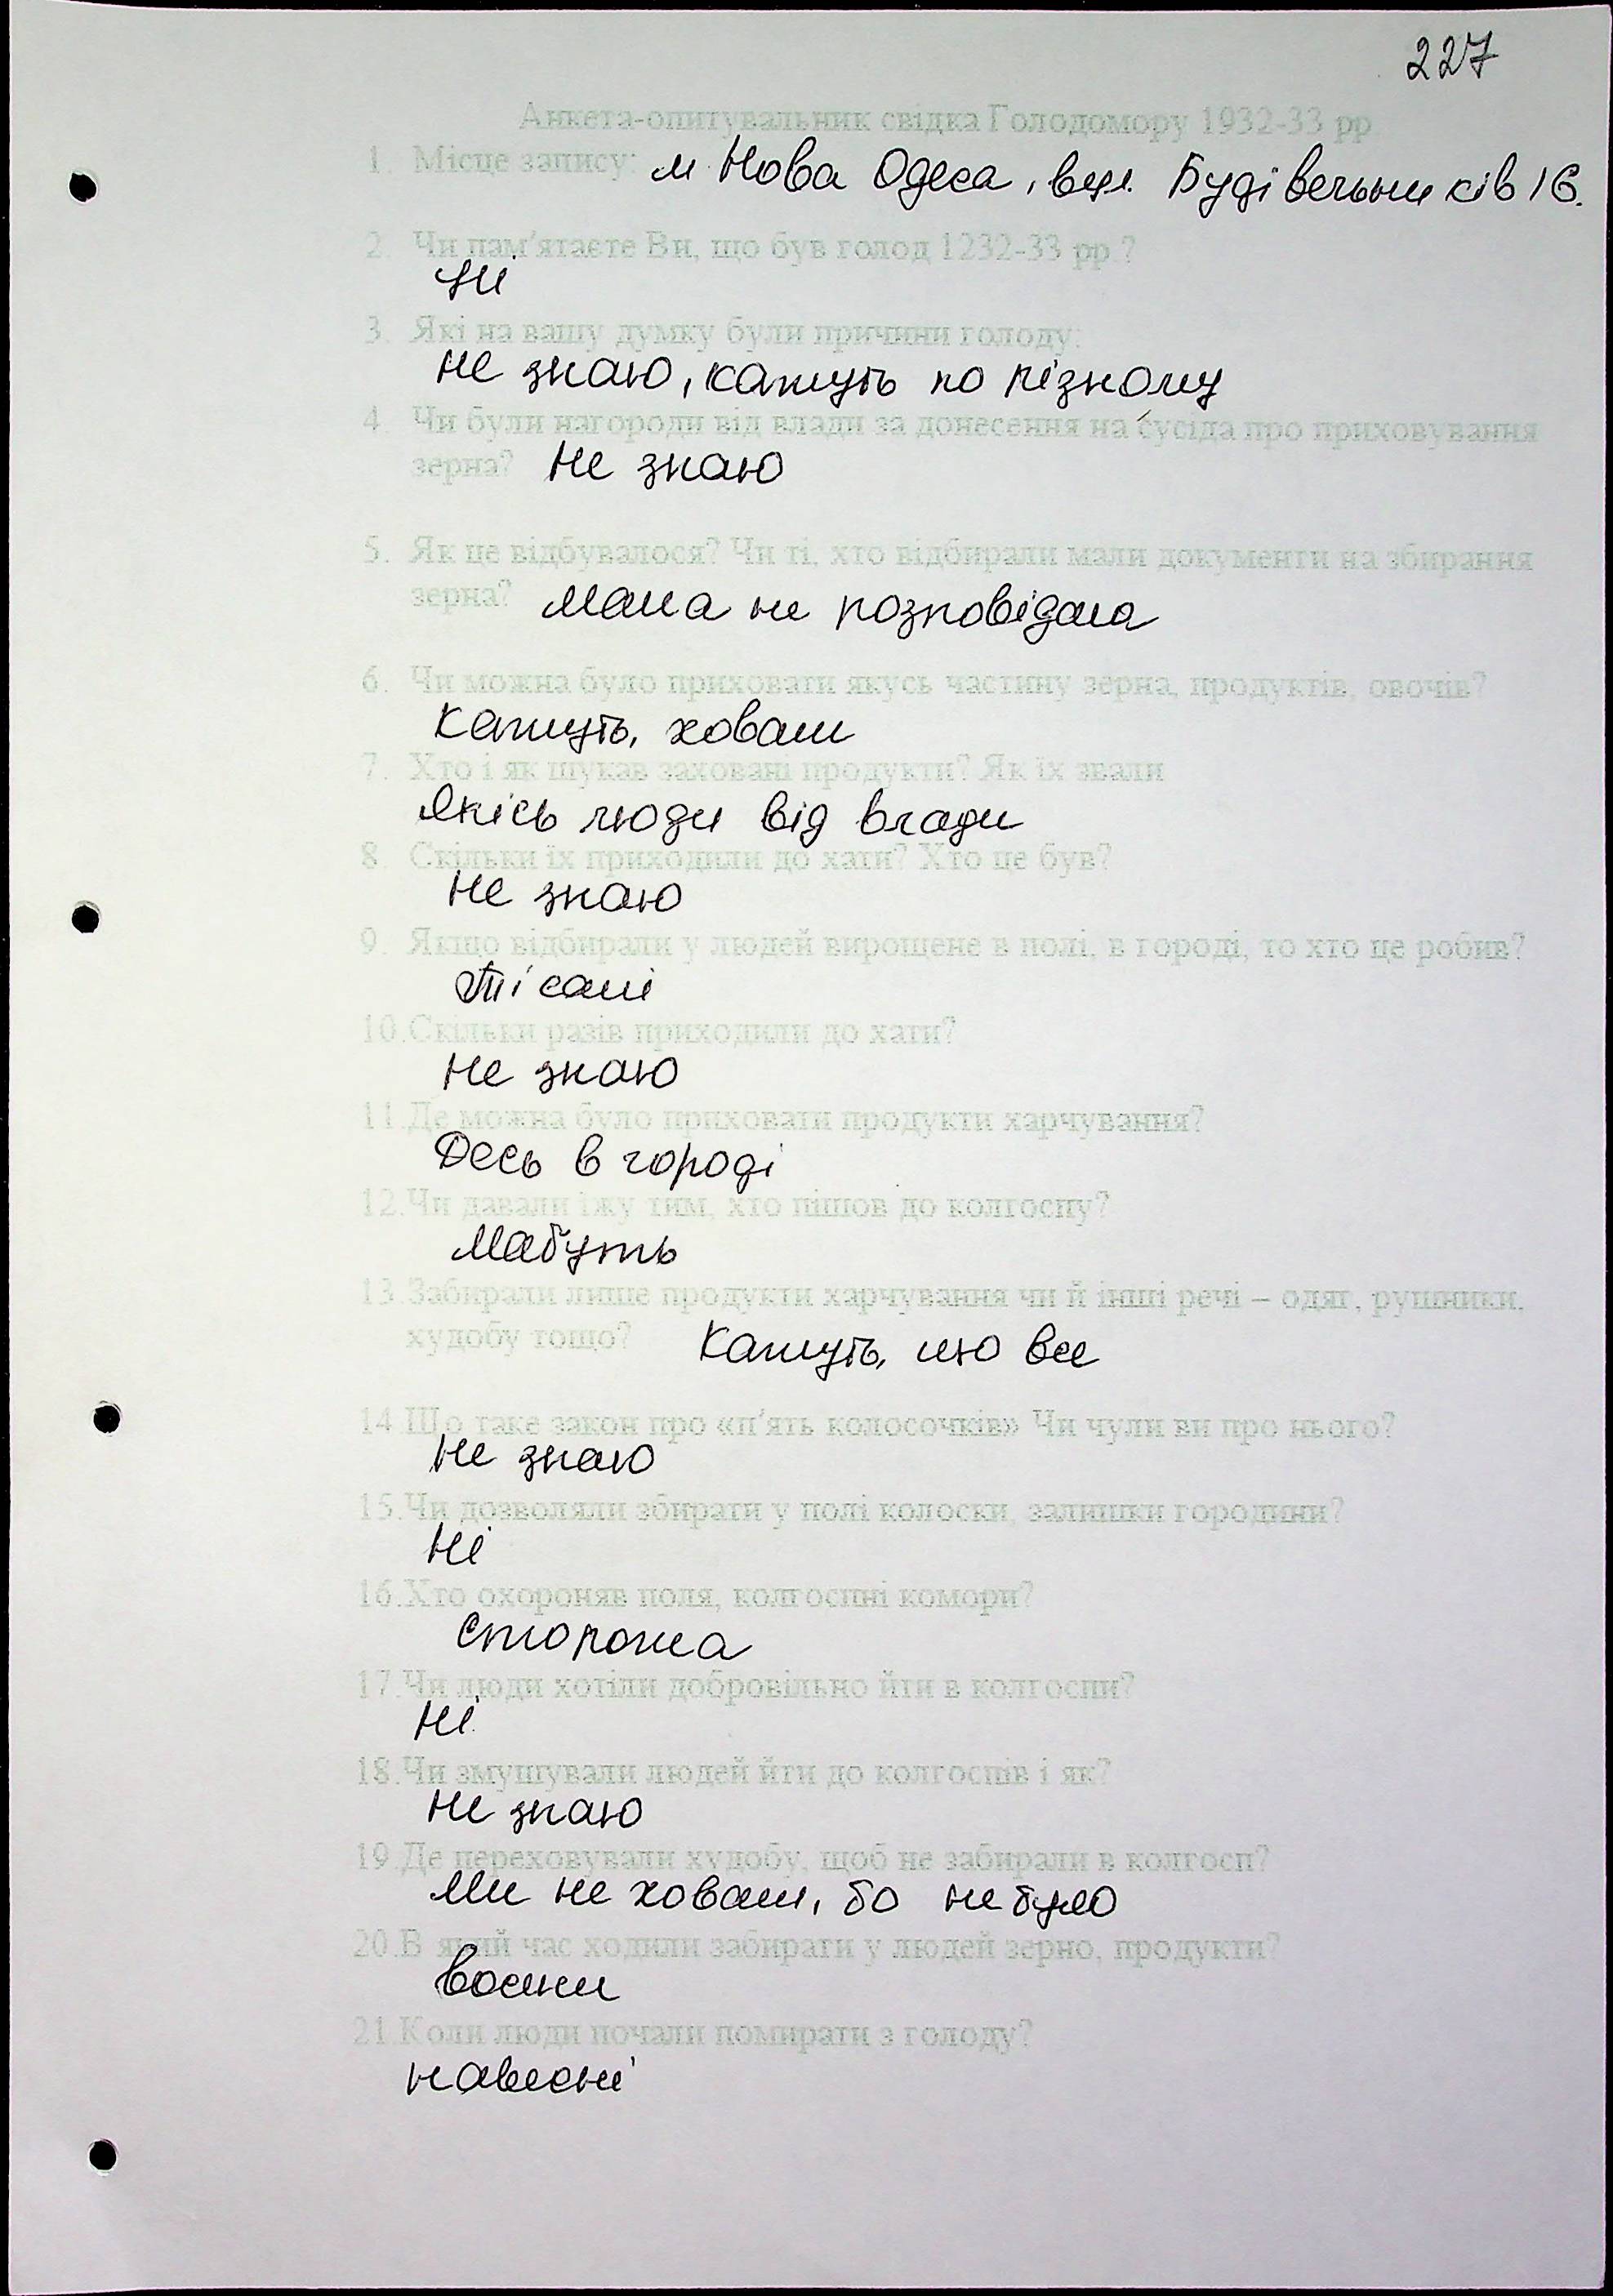 227
Анкета-опитувальник свідка Голодомору 1932-33 рр
1. Місце запису: м. Нова Одеса, вул. Будівельників 16.
2. Чи пам'ятаєте Ви, що був голод 1232-33 рр.?
Ні
3. Які на вашу думку були причини голоду:
не знаю, кажуть по різному
4. Чи були нагороди від влади за донесення на сусіда про приховування
зерна? Не знаю
5. Як це відбувалося? Чи ті, хто відбирали мали документи на збирання
зерна? Мама не розповідала
6. Чи можна було приховати якусь частину зерна, продуктів, овочів?
Кажуть, ховали
7. Хто і як шукав заховані продукти? Як їх звали
Якісь люди від влади
8. Скільки їх приходили до хати? Хто це був?
Не знаю
9. Якщо відбирали у людей вирощене в полі, в городі, то хто це робив?
Ті самі
10. Скільки разів приходили до хати?
Не знаю
11. Де можна було приховати продукти харчування?
Десь в городі
12. Чи давали їжу тим, хто пішов до колгоспу?
Мабуть
13. Забирали лише продукти харчування чи й інші речі – одяг, рушники,
худобу тощо? Кажуть, що все
14. Що таке закон про «п'ять колосочків» Чи чули ви про нього?
Не знаю
15. Чи дозволяли збирати у полі колоски, залишки городини?
Ні
16. Хто охороняв поля, колгоспні комори?
Сторожа
17. Чи люди хотіли добровільно йти в колгоспи?
Ні.
18. Чи змушували людей йти до колгоспів і як?
Не знаю
19. Де переховували худобу, щоб не забирали в колгосп?
Ми не ховали, бо не було
20. В який час ходили забирати у людей зерно, продукти?
Восени
21. Коли люди почали помирати з голоду?
навесні